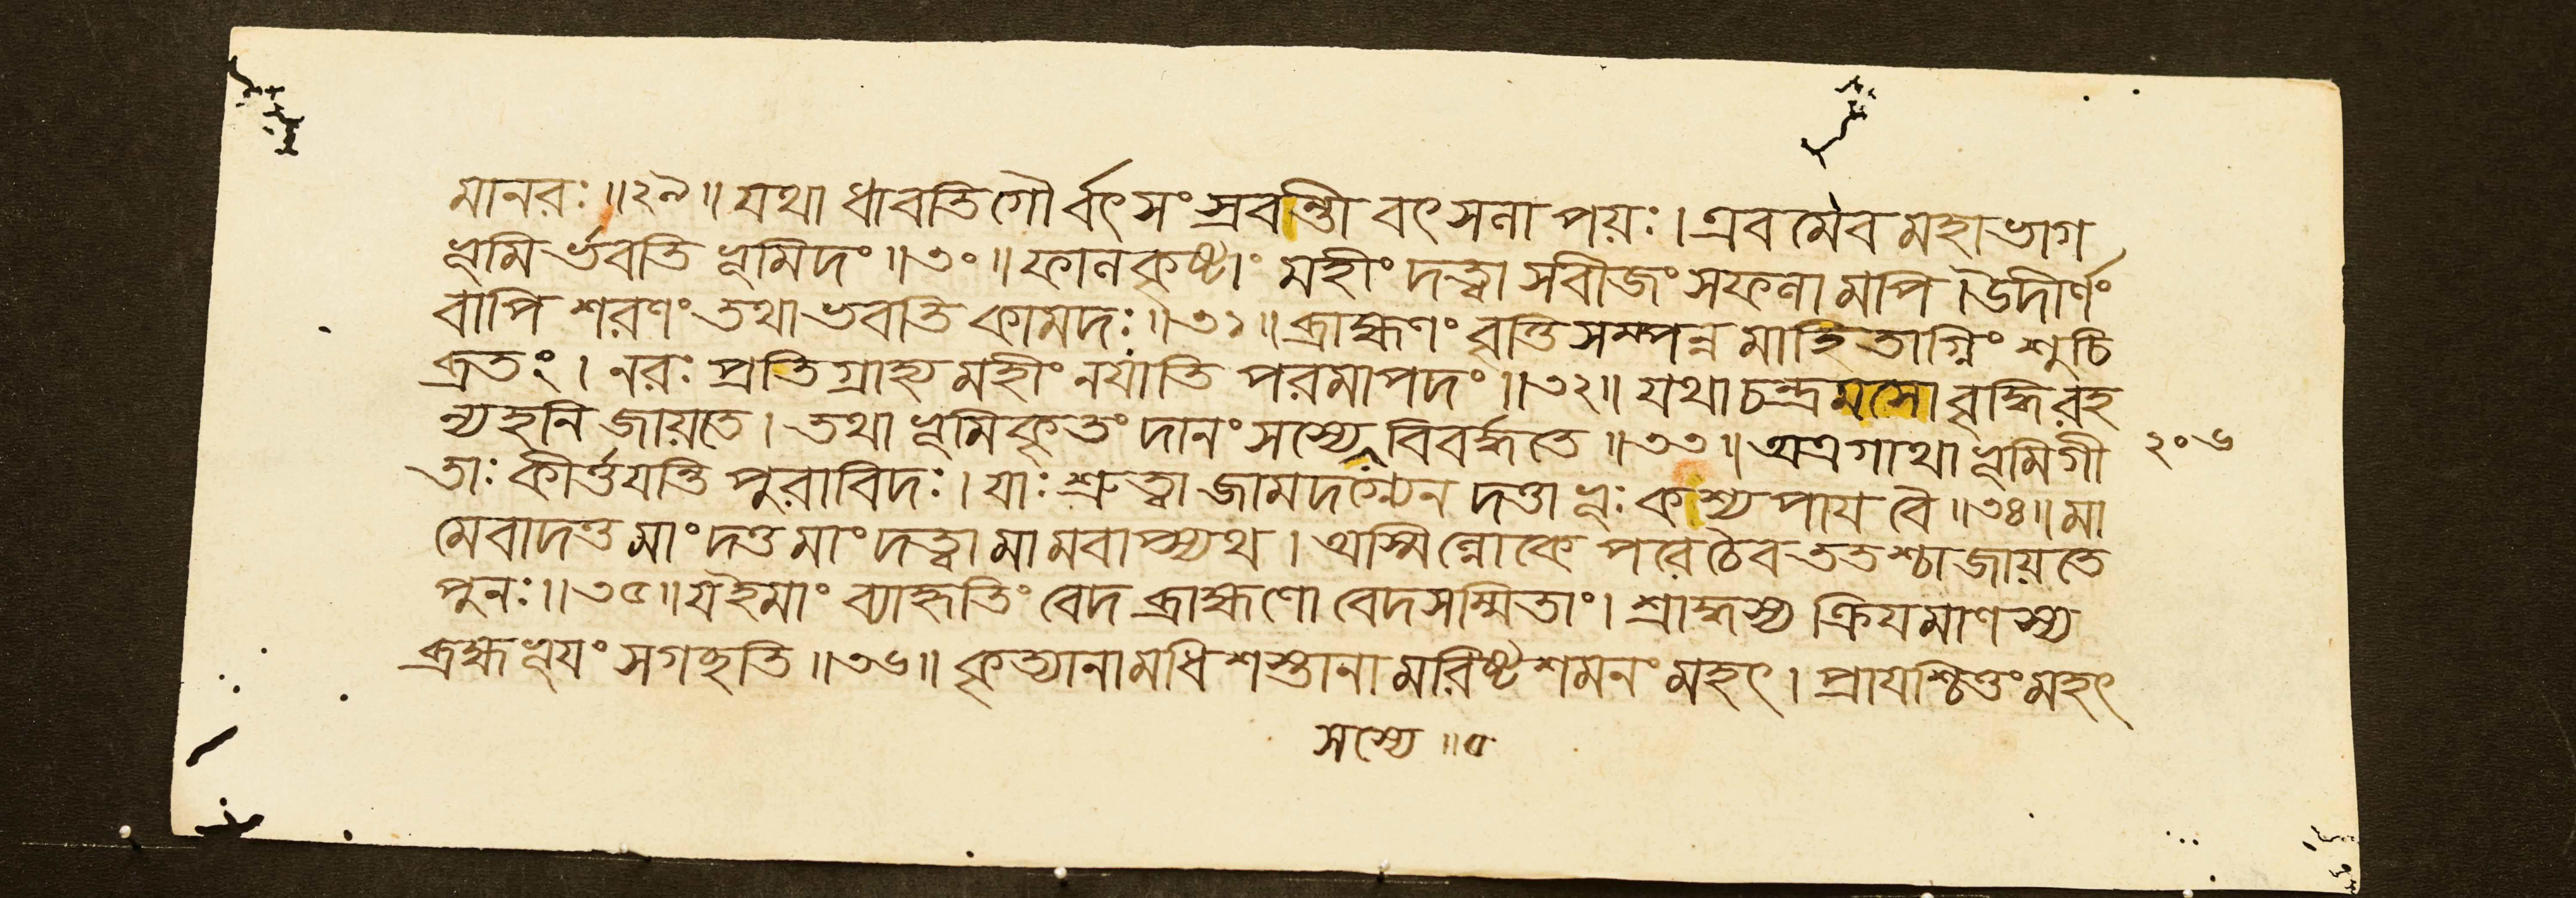 মানরঃ ॥ ২৯ ॥ যথা ধাবতি গৌর্বৎসং স্রবন্তী বৎসলা পয়ঃ । এবমেব মহাভাগ
ভূমির্ভবতি ভূমিদং ॥ ৩০ ॥ ফালকৃষ্টাং মহীং দত্ত্বা সবীজং সফলামপি । উদীর্ণং
বাপি শরণং তথা ভবতি কামদঃ ॥ ৩১ ॥ ব্রাহ্মণং বৃত্তিসম্পন্নমাহিতাগ্নিং শুচি
ব্রতং । নরঃ প্রতিগ্রাহ্য মহীং ন যাতি পরমাপদং ॥ ৩২ ॥ যথা চন্দ্রমসো বৃদ্ধিরহ
ন্যহনি জায়তে । তথা ভূমিকৃতং দানং সস্যে বিবর্দ্ধতে ॥ ৩৩ ॥ অত্র গাথা ভূমিগী
তাঃ কীর্ত্তযন্তি পুরাবিদঃ । যাঃ শ্রুত্বা জামদগ্ন্যেন দত্তা ভূঃ কশ্যপায বৈ ॥ ৩৪ ॥ মা
মেবাদত্ত মাং দত্ত মাং দত্ত্বা মামবাপ্স্যথ । অস্মিল্লোকে পরে চৈব ততশ্চাজায়তে
পুনঃ ॥ ৩৫ ॥ য ইমাং ব্যাহৃতিং বেদ ব্রাহ্মণো বেদসম্মিতাং । শ্রাদ্ধস্য ক্রিযমাণস্য
ব্রহ্মভূযং স গচ্ছতি ॥ ৩৬ ॥ কৃত্যানামধিশস্তানামরিষ্টশমনং মহৎ । প্রাযশ্চিত্তং মহৎ
২০৬
সস্যে ॥ ৫